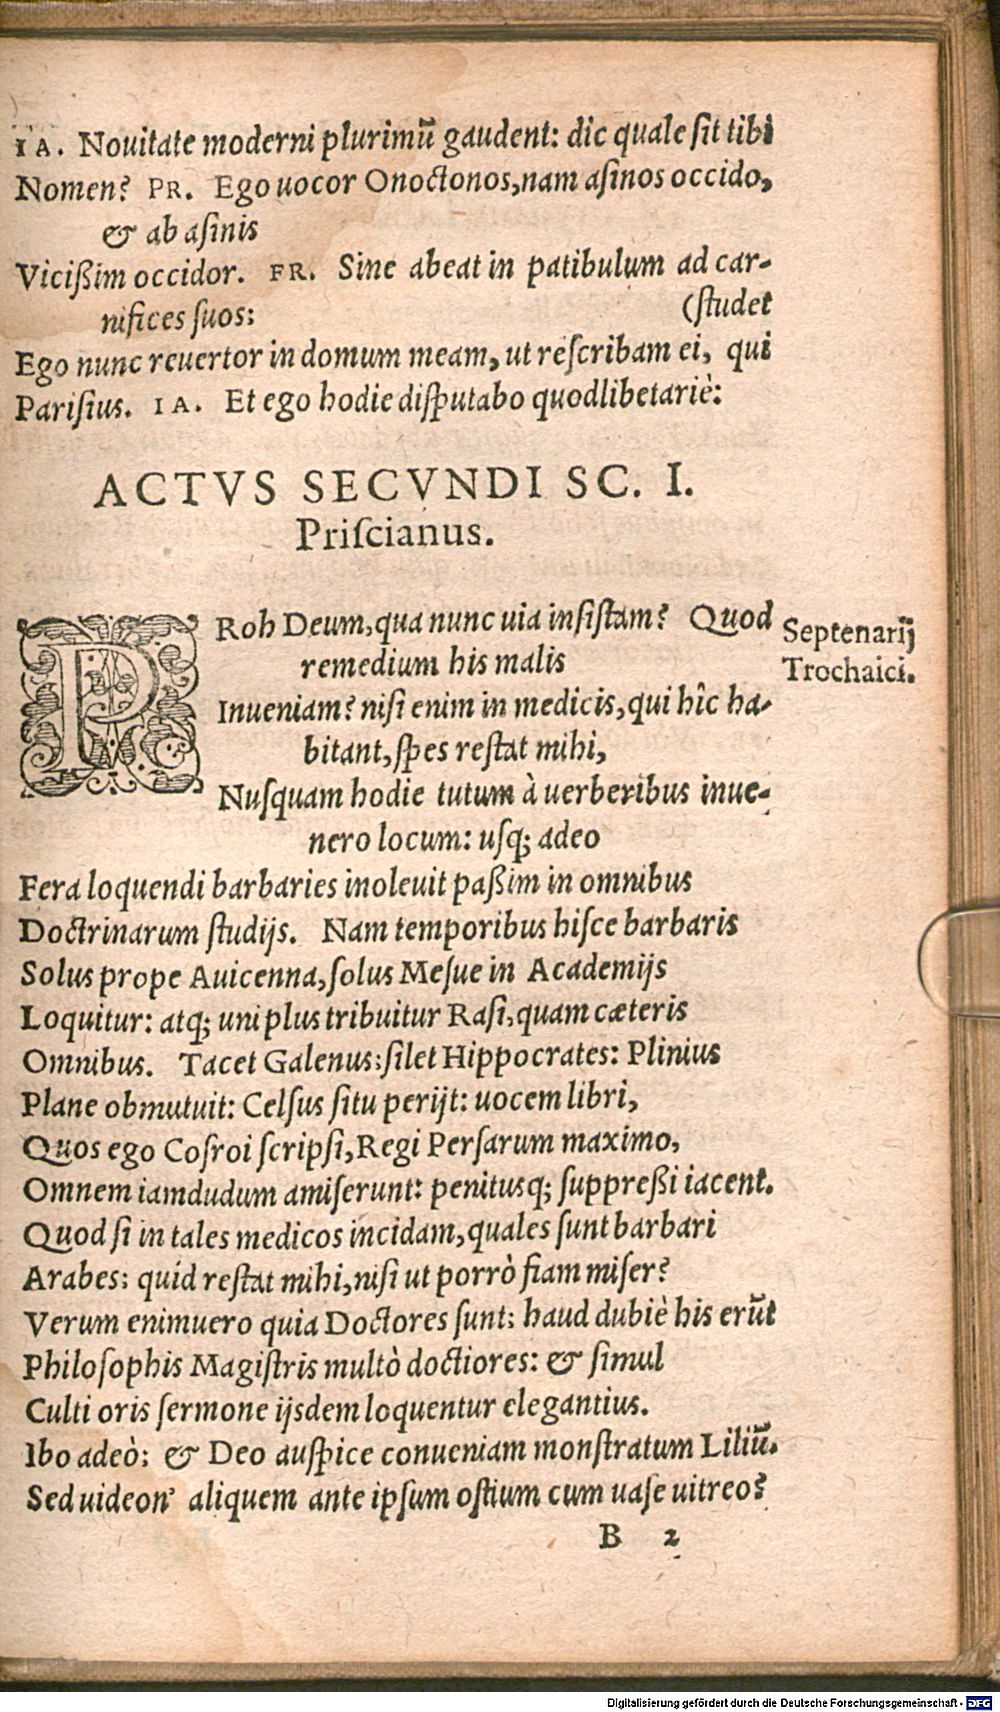 IA. Nouitate moderni plurimū gaudent: dic quale sit tibi
Nomen? PR. Ego uocor Onoctonos, nam asinos occido,
& ab asinis
Vicißim occidor. FR. Sine abeat in patibulum ad car-
nifices suos: (studet
Ego nunc reuertor in domum meam, ut rescribam ei, qui
Parisius. IA. Et ego hodie disputabo quodlibetariè:
ACTVS SECVNDI SC. I.
Priscianus.
PRoh Deum, qua nunc uia insistam? Quod
remedium his malis
Septenarij
Trochaici.
Inueniam? nisi enim in medicis, qui hîc ha-
bitant, spes restat mihi,
Nusquam hodie tutum à uerberibus inue-
nero locum: usq; adeo
Fera loquendi barbaries inoleuit paßim in omnibus
Doctrinarum studijs. Nam temporibus hisce barbaris
Solus prope Auicenna, solus Mesue in Academijs
Loquitur: atq; uni plus tribuitur Rasi, quam cæteris
Omnibus. Tacet Galenus: silet Hippocrates: Plinius
Plane obmutuit: Celsus situ perijt: uocem libri,
Quos ego Cosroi scripsi, Regi Persarum maximo,
Omnem iamdudum amiserunt: penitusq; suppreßi iacent.
Quod si in tales medicos incidam, quales sunt barbari
Arabes: quid restat mihi, nisi ut porrò fiam miser?
Verum enimuero quia Doctores sunt: haud dubiè his erūt
Philosophis Magistris multò doctiores: & simul
Culti oris sermone ijsdem loquentur elegantius.
Ibo adeò: & Deo auspice conueniam monstratum Liliū.
Sed uideon' aliquem ante ipsum ostium cum uase uitreo?
B 2
Digitalisierung gefördert durch die Deutsche Forschungsgemeinschaft - DFG